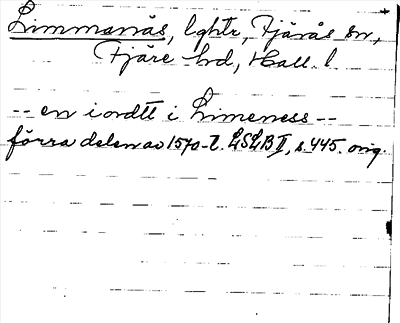 Limmanäs, lghtr, Fjärås sn,
Fjäre hd, Hall. l.
-- en iordtt i Limeness --
förra delen av 1570-t. LSLB II, s. 445. orig.